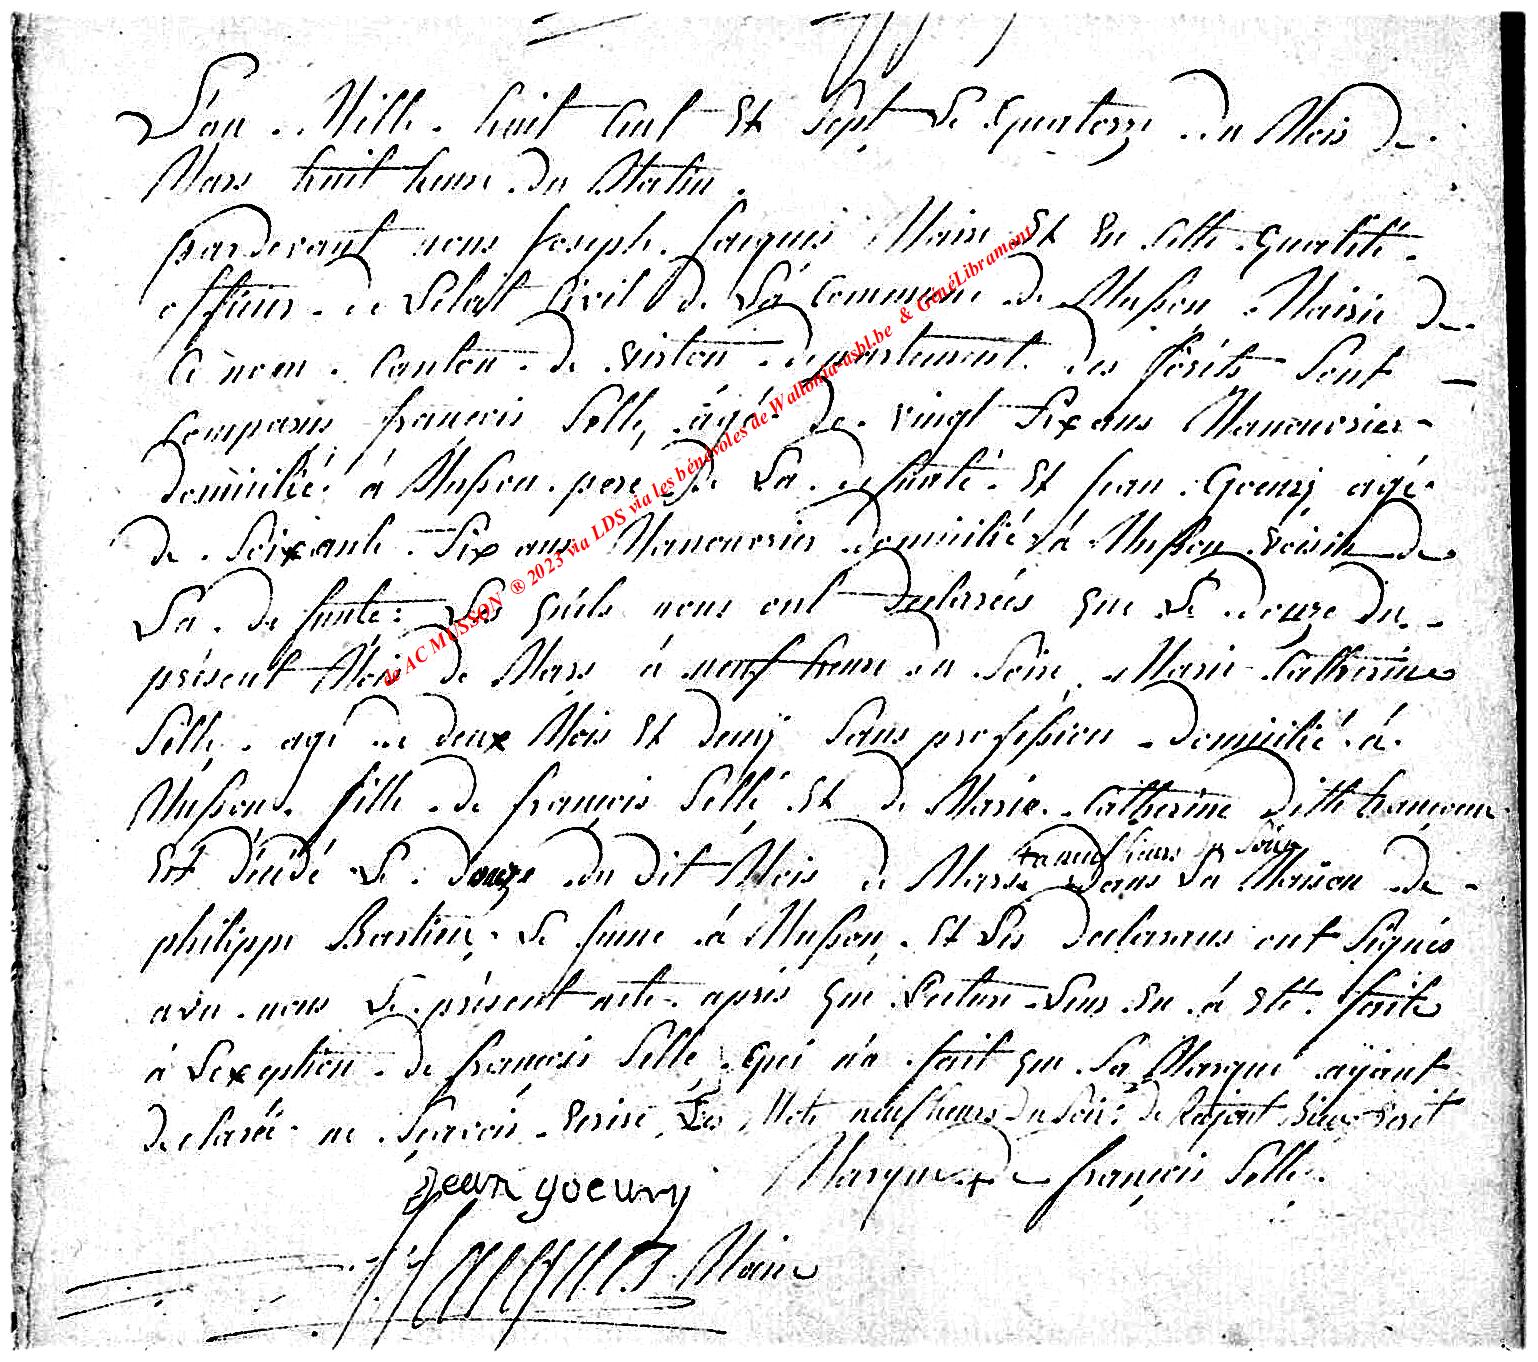 L'an Mille huit Cent Et Sept Le Quatorze du Mois de
Mars huit heure du Matin.
pardevant nous Joseph Jacques Maire Et En Cette Qualité
officier de L'etat Civil de La Commune de Musson Mairie de
Ce nom Canton de Virton departement des forêts Sont
Comparus françois Selle, âgé de vingt Six ans Manouvrier
domicilié à Musson pere de La defunte Et jean Goeury agé
de Soixante Six ans Manouvrier domicilié à Musson voisin de
La defunte: Les quels nous ont declarées que Le douze du
présent Mois de Mars à neuf heure du Soir Marie Catherine
Selle, agé de deux Mois Et demÿ Sans profession domicilié à
Musson, fille de françois Sellé Et de Marie Catherine ditte
Est décédé Le douze du dit Mois de Mars dans La Maison de
a neuf heurs du Soir
philippe Bastien, Le Sume à Musson, Et Les declarans ont Signés
avec nous Le présent acte après que Lecture Leur En à Eté faite
à L'exeption de françois Selle, Qui n'a fait que Sa Marque aÿant
declaré ne Scavoir Ecrire, Les Mots neuf heurs du Soir de Rajout Susescrit
jean goeury Marque + de françois Selle.
JJacques Maire
de AC MUSSON ® 2023 via LDS via les bénévoles de Wallonia-asbl.be & GénéLibramont